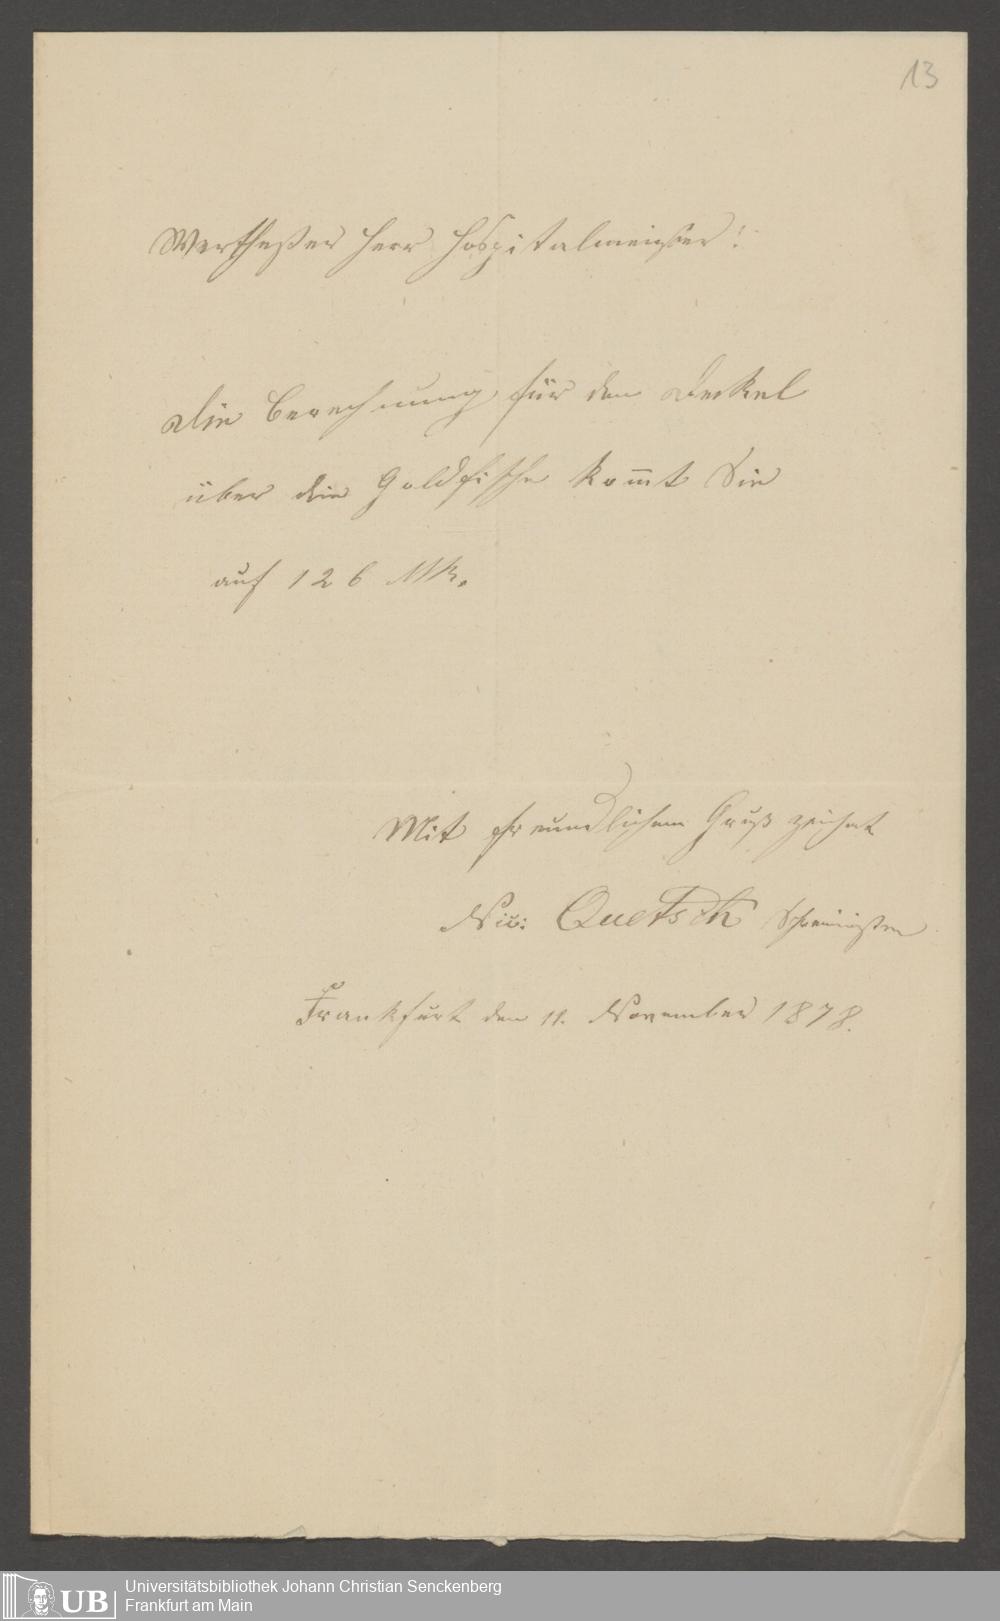 13
Werthester Herr Hospitalmeister!
Die Berechnung für den Deckel
über die Goldfische kom̅t Sie
auf 126 Mk.
Mit freundlichem Gruß zeichnet
Nic: Quetsch
Frankfurt den 11. November 1878.
UB
Universitätsbibliothek Johann Christian Senckenberg
Frankfurt am Main